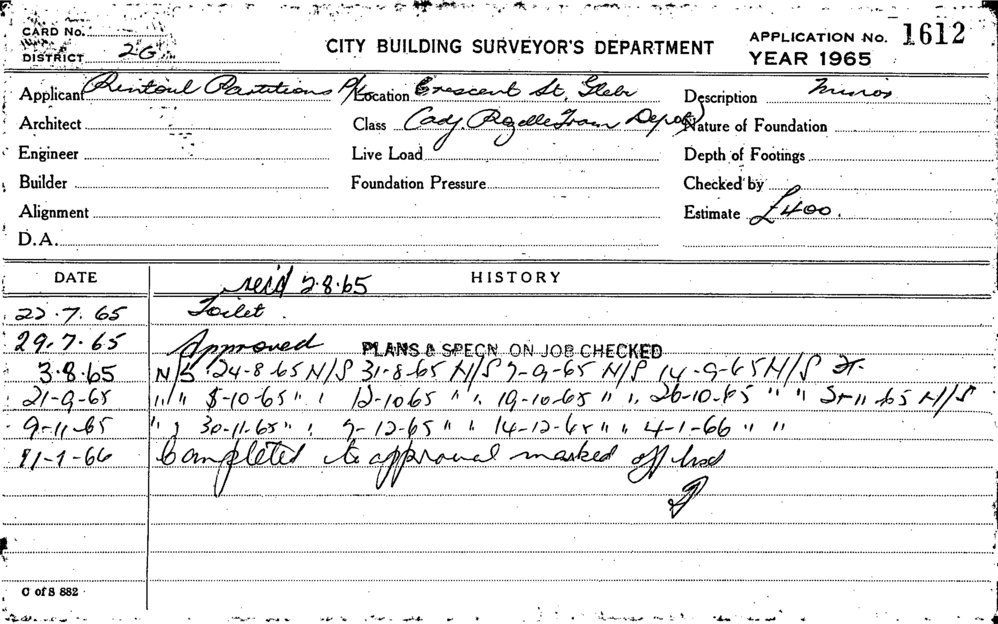 CARD No.
CITY BUILDING SURVEYOR'S DEPARTMENT
APPLICATION No. 1612
DISTRICT 2G
YEAR 1965
Applicant Rintoul Partitions P/L Location Crescent St, Glebe Description Minor
Architect Class (adj. Rozelle Tram Depot) Nature of Foundation
Engineer Live Load Depth of Footings
Builder Foundation Pressure Checked by
Alignment Estimate £400.
D.A.
DATE HISTORY
rec'd 2.8.65
22.7.65 Toilet.
29.7.65 Approved PLANS & SPECN ON JOB CHECKED
3.8.65 N/S 24-8-65 N/S 31-8-65 N/S 7-9-65 N/S 14-9-65 N/S
21-9-65 " " 5-10-65 " " 12-10-65 " " 19-10-65 " " 26-10-65 " " 2-11-65 N/S
9-11-65 " " 30-11-65 " " 7-12-65 " " 14-12-65 " " 4-1-66 " "
11-1-66 Completed to approval marked off
C of S 882